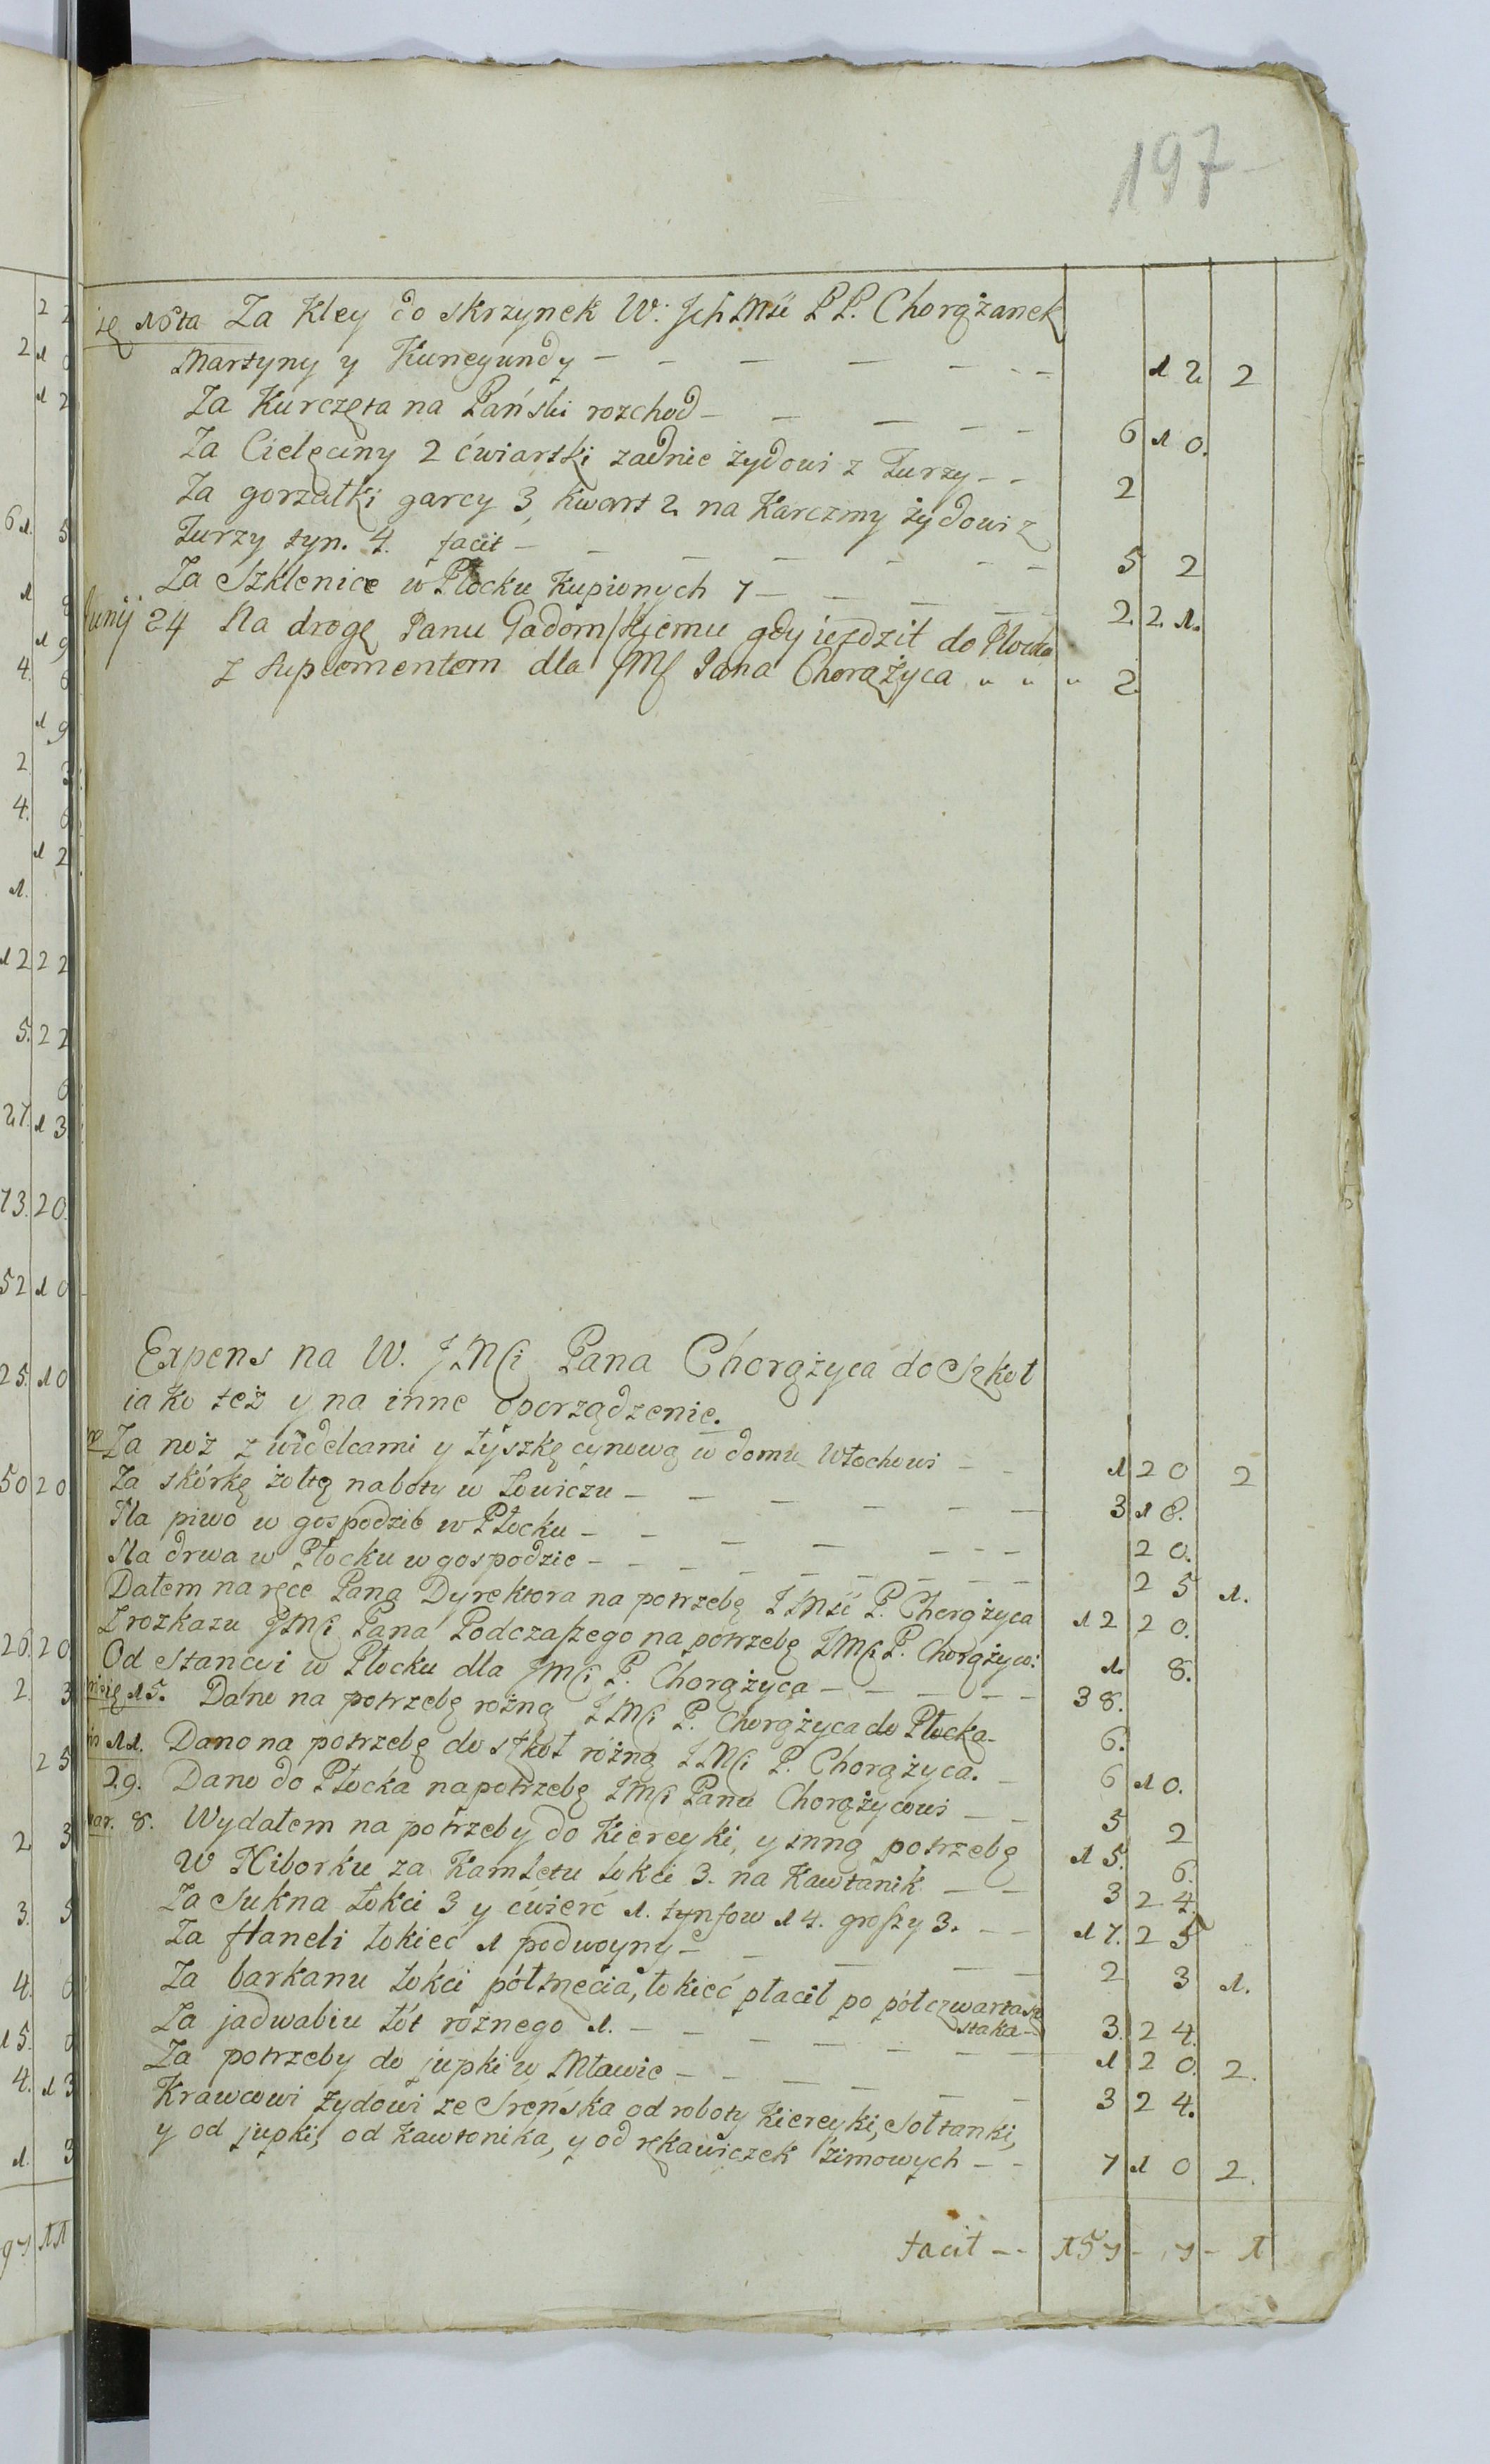 197
Nota Za Kley do skrzynek W: Jch Mśći P P. Chorążanek
Martyny y Kunegundy - - - - - - 12 2
Za Kurczęta na Pański rozchod - - - - - 6 10.
Za Cielęciny 2 ćwiartki zadnie żydowi z Turzy - - 2
Za gorzałki garcy 3, kwart 2 na Karczmy żydowi z
Turzy tyn. 4. facit - - - - - - - 5 2
Za Szklenice w Płocku Kupionych 7 - - - - 2. 21.
Junij 24 Na drogę Panu Gadomskiemu gdy ieździł do Płocka
z Suplementem dla JMći Pana Chorążyca " " " 2.
Expens na W. JMći Pana Chorążyca do Szkoł
iako też y na inne oporządzenie.
Za noż z widelcami y łyszkę cynową w domu Włochowi - - 1 20 2
Za skórkę żołtę na boty w Łowiczu - - - - - - 3 18.
Na piwo w gospodzie w Płocku - - - - - - - 20.
Na drwa w Płocku w gospodzie - - - - - - - 25 1.
Datem na ręce Pana Dyrektora na potrzebę JMść P. Chorążyca 12 20.
Z rozkazu JMći Pana Podczaszego na potrzebę JMći P. Chorążyco: 1. 8.
Od Stancyi w Płocku dla JMći P. Chorążyca - - - - - 38.
15. Dano na potrzebę rożną JMći P. Chorążyca do Płocka - 6.
11. Dano na potrzebę do szkoł rożną JMći P. Chorążyca. - 6 10.
29. Dano do Płocka na potrzebę JMći Panu Chorążycowi - - 5 2
8. Wydałem na potrzeby do Kiereyki, y inną potrzebę 15. 6.
W Niborku za Kamletu łokci 3. na Kawtanik - - 3 24.
Za Sukna łokci 3 y ćwierć 1. tynfow 14. groszy 3. - - 17. 25
Za flaneli łokieć 1 podwoyny - - - - 2 3 1.
Za barkanu łokci półtrzecia, łokieć płacił po półczwarta sze
staka - 3. 24.
Za jadwabiu łót rożnego 1. - - - - - - - 1 20. 2.
Za potrzeby do jupki w Mławie - - - - - - 3 24.
Krawcowi żydowi ze Sreńska od roboty Kiereyki, Sołtanki,
y od jupki, od Kawtonika, y od rękawiczek zimowych - - 7 10 2.
facit - - 157 - 7 - 1